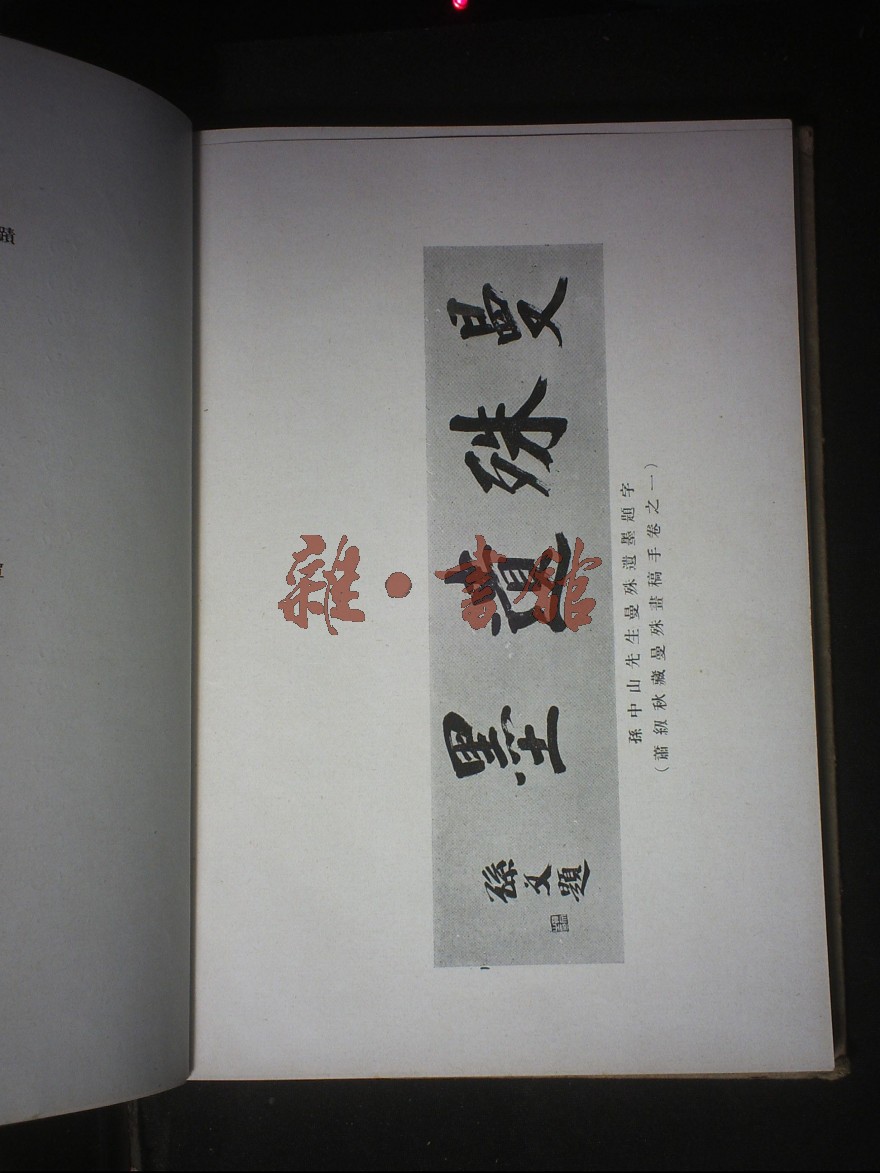 曼殊遺墨
孫文題
孫中山先生曼殊遺墨題字
（蕭紉秋藏曼殊畫稿手卷之一）
蹟